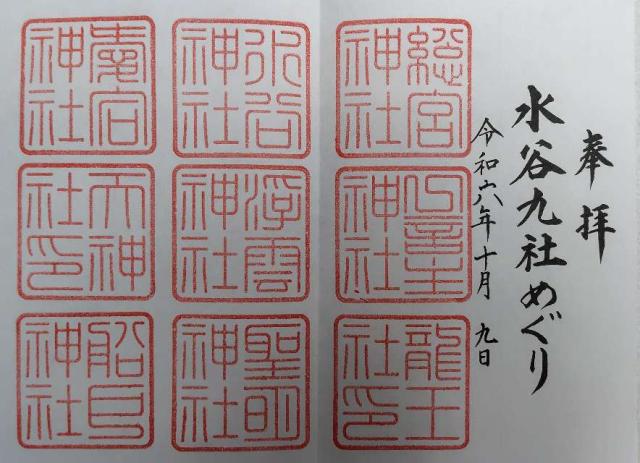 奉拝
水谷九社めぐり
令和六年十月九日
總宮神社
一言主神社
龍王社印
水谷神社
浮雲神社
聖明神社
愛宕神社
天神社印
船戸神社